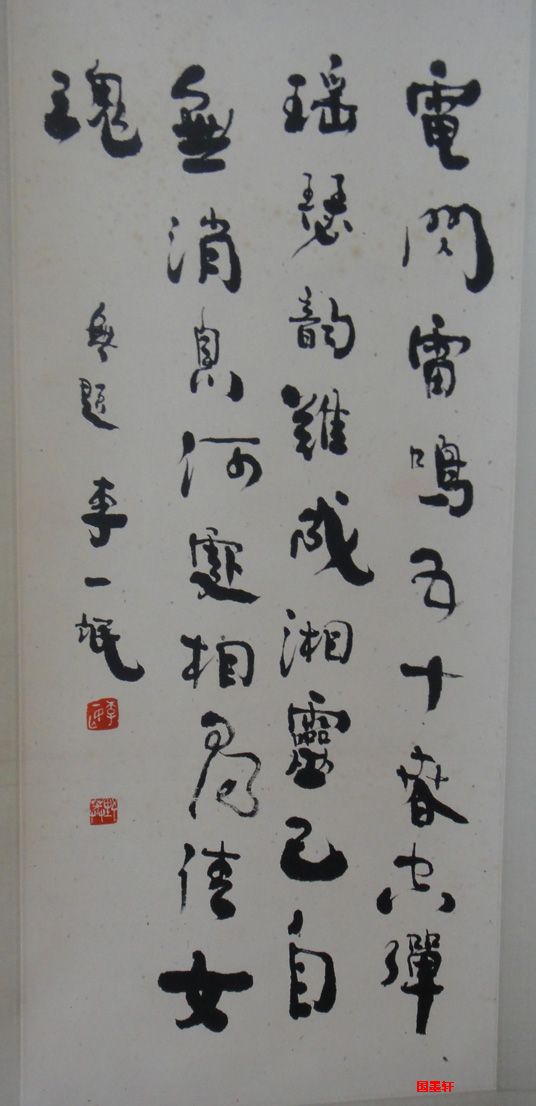 電閃雷鳴五十春空彈
瑶瑟韵難成湘靈已自
無消息何處相尋倩女
魂
無題 李一氓
国墨轩